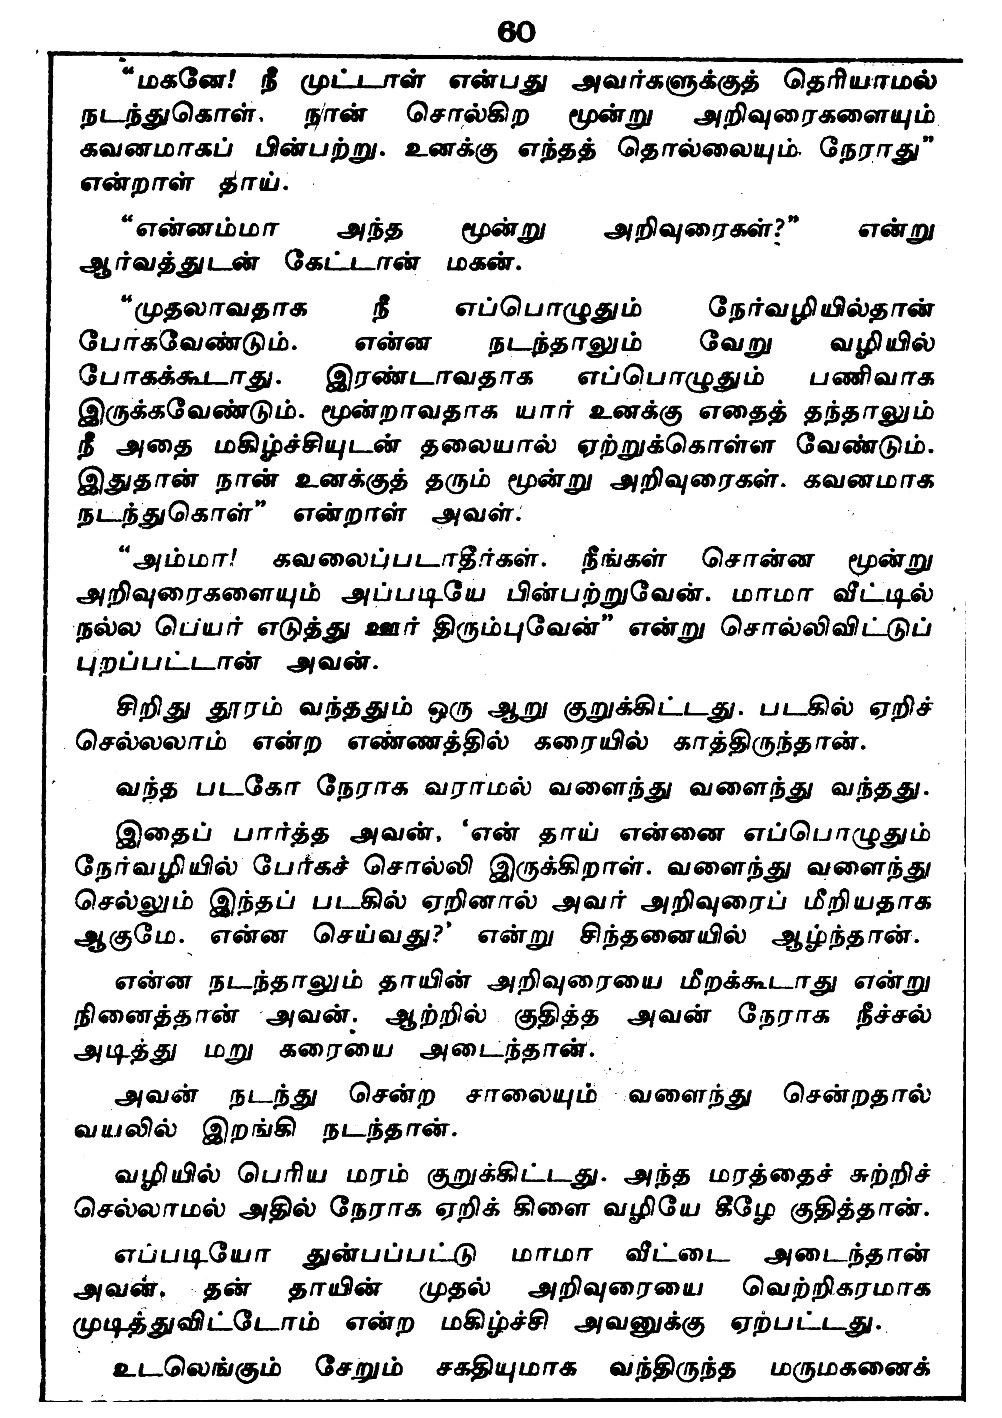 60
“மகனே! நீ முட்டாள் என்பது அவர்களுக்குத் தெரியாமல்
நடந்துகொள். நான் சொல்கிற மூன்று அறிவுரைகளையும்
கவனமாகப் பின்பற்று. உனக்கு எந்தத் தொல்லையும் நேராது”
என்றாள் தாய்.
“என்னம்மா அந்த மூன்று அறிவுரைகள்?” என்று
ஆர்வத்துடன் கேட்டான் மகன்.
“முதலாவதாக நீ எப்பொழுதும் நேர்வழியில்தான்
போகவேண்டும். என்ன நடந்தாலும் வேறு வழியில்
போகக்கூடாது. இரண்டாவதாக எப்பொழுதும் பணிவாக
இருக்கவேண்டும். மூன்றாவதாக யார் உனக்கு எதைத் தந்தாலும்
நீ அதை மகிழ்ச்சியுடன் தலையால் ஏற்றுக்கொள்ள வேண்டும்.
இதுதான் நான் உனக்குத் தரும் மூன்று அறிவுரைகள். கவனமாக
நடந்துகொள்” என்றாள் அவள்.
“அம்மா! கவலைப்படாதீர்கள். நீங்கள் சொன்ன மூன்று
அறிவுரைகளையும் அப்படியே பின்பற்றுவேன். மாமா வீட்டில்
நல்ல பெயர் எடுத்து ஊர் திரும்புவேன்” என்று சொல்லிவிட்டுப்
புறப்பட்டான் அவன்.
சிறிது தூரம் வந்ததும் ஒரு ஆறு குறுக்கிட்டது. படகில் ஏறிச்
செல்லலாம் என்ற எண்ணத்தில் கரையில் காத்திருந்தான்.
வந்த படகோ நேராக வராமல் வளைந்து வளைந்து வந்தது.
இதைப் பார்த்த அவன், ‘என் தாய் என்னை எப்பொழுதும்
நேர்வழியில் போகச் சொல்லி இருக்கிறாள். வளைந்து வளைந்து
செல்லும் இந்தப் படகில் ஏறினால் அவர் அறிவுரைப் மீறியதாக
ஆகுமே. என்ன செய்வது?’ என்று சிந்தனையில் ஆழ்ந்தான்.
என்ன நடந்தாலும் தாயின் அறிவுரையை மீறக்கூடாது என்று
நினைத்தான் அவன். ஆற்றில் குதித்த அவன் நேராக நீச்சல்
அடித்து மறு கரையை அடைந்தான்.
அவன் நடந்து சென்ற சாலையும் வளைந்து சென்றதால்
வயலில் இறங்கி நடந்தான்.
வழியில் பெரிய மரம் குறுக்கிட்டது. அந்த மரத்தைச் சுற்றிச்
செல்லாமல் அதில் நேராக ஏறிக் கிளை வழியே கீழே குதித்தான்.
எப்படியோ துன்பப்பட்டு மாமா வீட்டை அடைந்தான்
அவன், தன் தாயின் முதல் அறிவுரையை வெற்றிகரமாக
முடித்துவிட்டோம் என்ற மகிழ்ச்சி அவனுக்கு ஏற்பட்டது.
உடலெங்கும் சேறும் சகதியுமாக வந்திருந்த மருமகனைக்